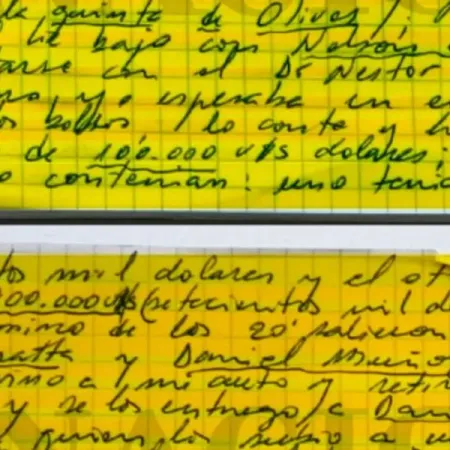 la quinta de Olivos /.
he bajo con Nelson
arse con el Dr Nestor
yo esperaba en e
os bolsos / lo conte y h
de 100.000 u$s dolares;
o contenian: uno tenia
tos mil dolares y el ot
00.000u$s (setecientos mil d
mino de los 20' salieron
ratta y Daniel Muño
vino a mi auto y reti
y se los entrego / a Dan
quien los subio a u